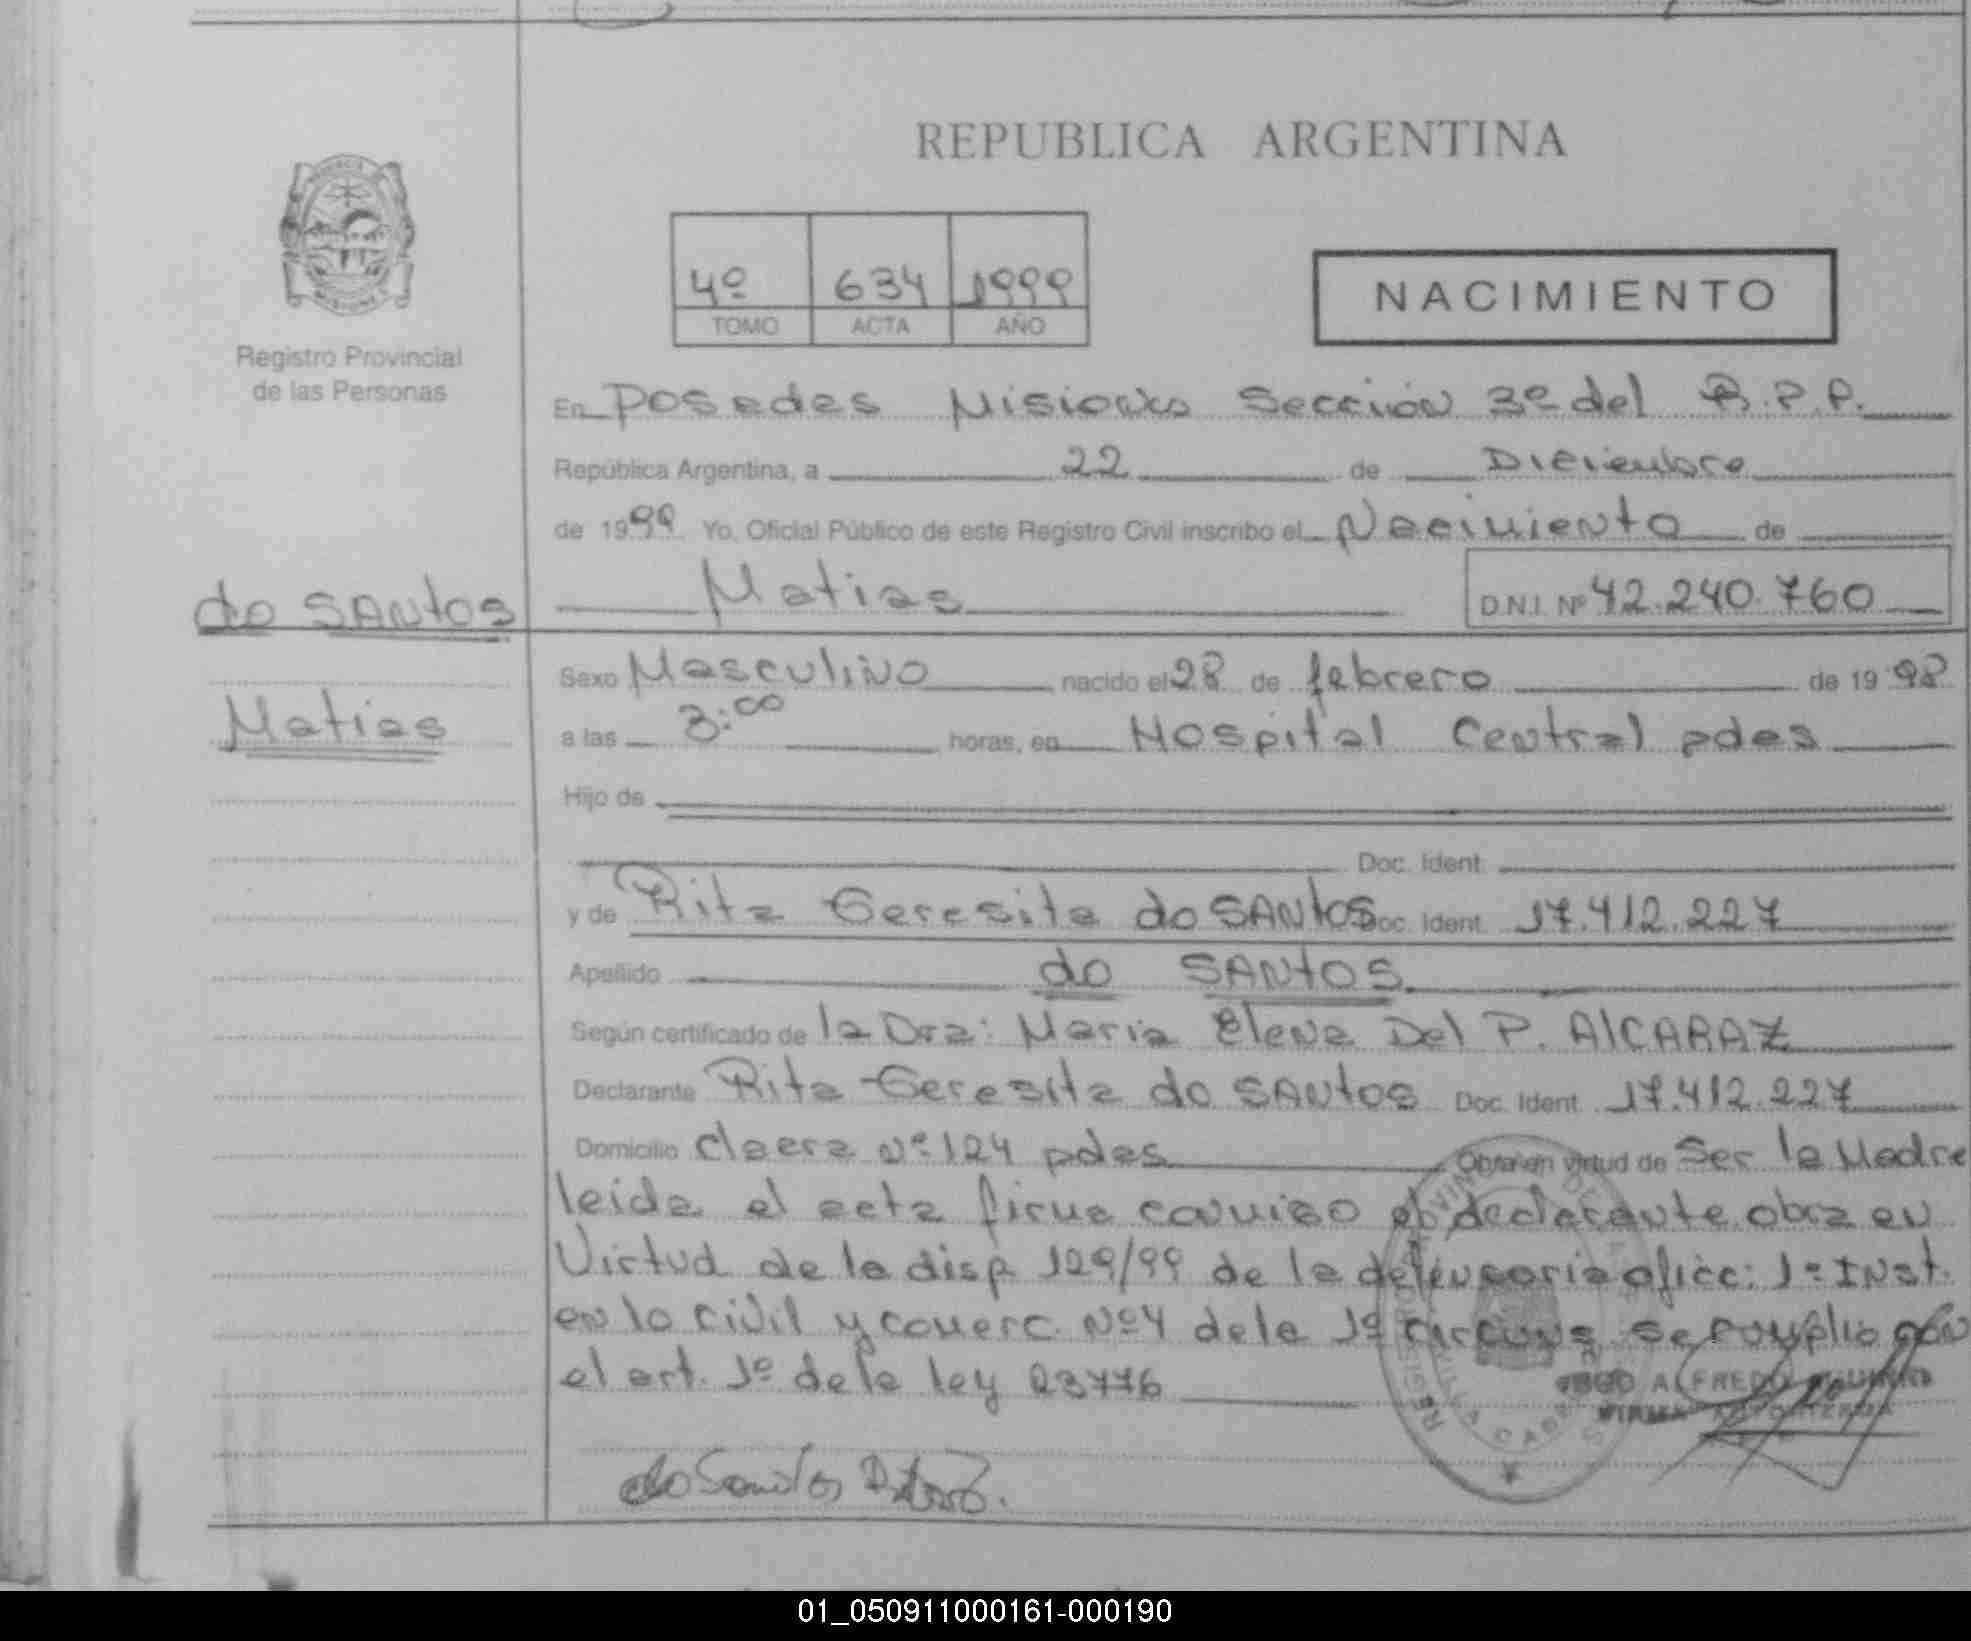 REPUBLICA ARGENTINA
4º 634 1999
TOMO ACTA AÑO
NACIMIENTO
Registro Provincial
de las Personas
En Posadas Misiones Sección 3ª del R.P.P.
República Argentina, a 22 de Diciembre
de 1999 Yo, Oficial Público de este Registro Civil inscribo el Nacimiento de
Matias D.N.I. Nº 42.240.760
do SANtOS
Matias
Sexo Masculino nacido el 28 de febrero de 1998
a las 3:00 horas, en Hospital Central pdas
Hijo de
Doc. Ident.
y de Rita Teresita do SANtOS Doc. Ident. 17.412.227
Apellido do SANtOS
Según certificado de la Dra: Maria Elena Del P. AlCARAZ
Declarante Rita Teresita do SANtOS Doc. Ident. 17.412.227
Domicilio claera Nº 124 pdas Obra en virtud de Ser la Madre
leida el acta firma conmigo el declarante obra en
Virtud de la disp 129/99 de la defensoria ofic: 1º INst.
en lo civil y comerc. Nº4 de la 1º circuns se cumplio con
el art. 1º de la ley 23776
ALFREDO
do Santos
01_050911000161-000190